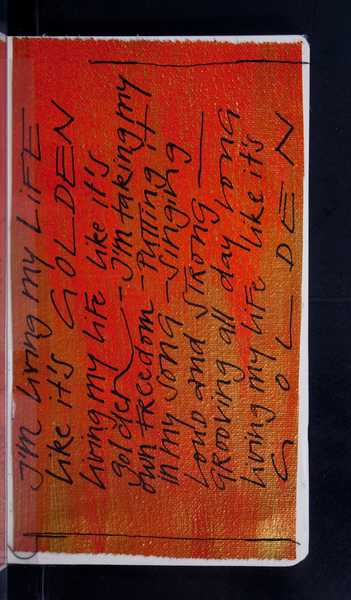 I'm living my LiFE
like it's GOLDEN
living my life like it's
golden - I'm taking my
own freedom - Putting it
in my song - Singing
Loud and STRONG -
Grooving all day long
living my life like it's
GOLDEN